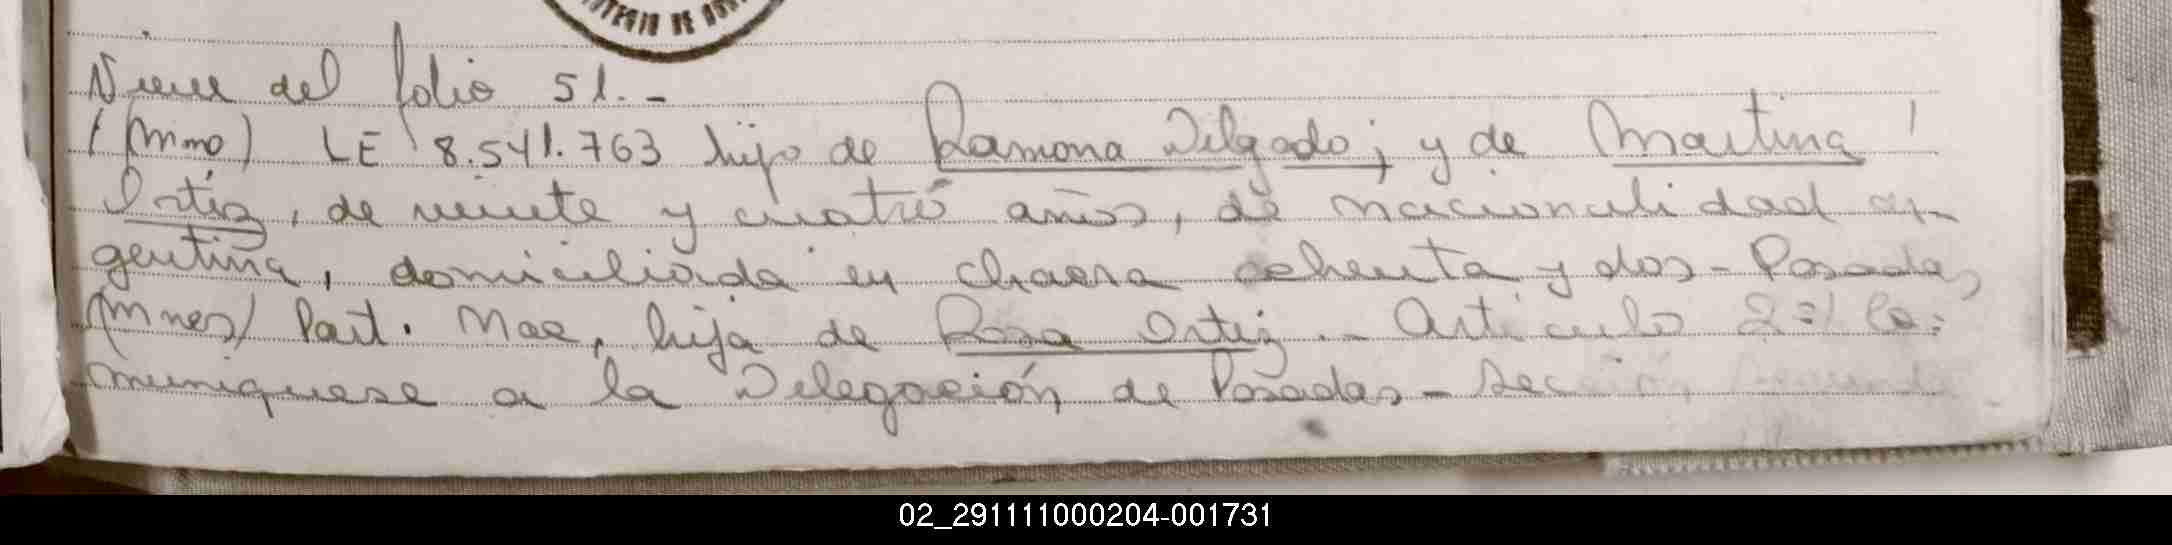 Viene del folio 51.-
(Mno) LE 8.541.763 hijo de Ramona Delgado; y de Martina
Ortiz, de veinte y cuatro años, de nacionalidad ar-
gentina, domiciliada en chacra ochenta y dos - Posadas
(Mnes) Part. Nac, hija de Rosa Ortiz.- Artículo 2º/ Co=
muniquese a la Delegación de Posadas - Sección
02_291111000204-001731